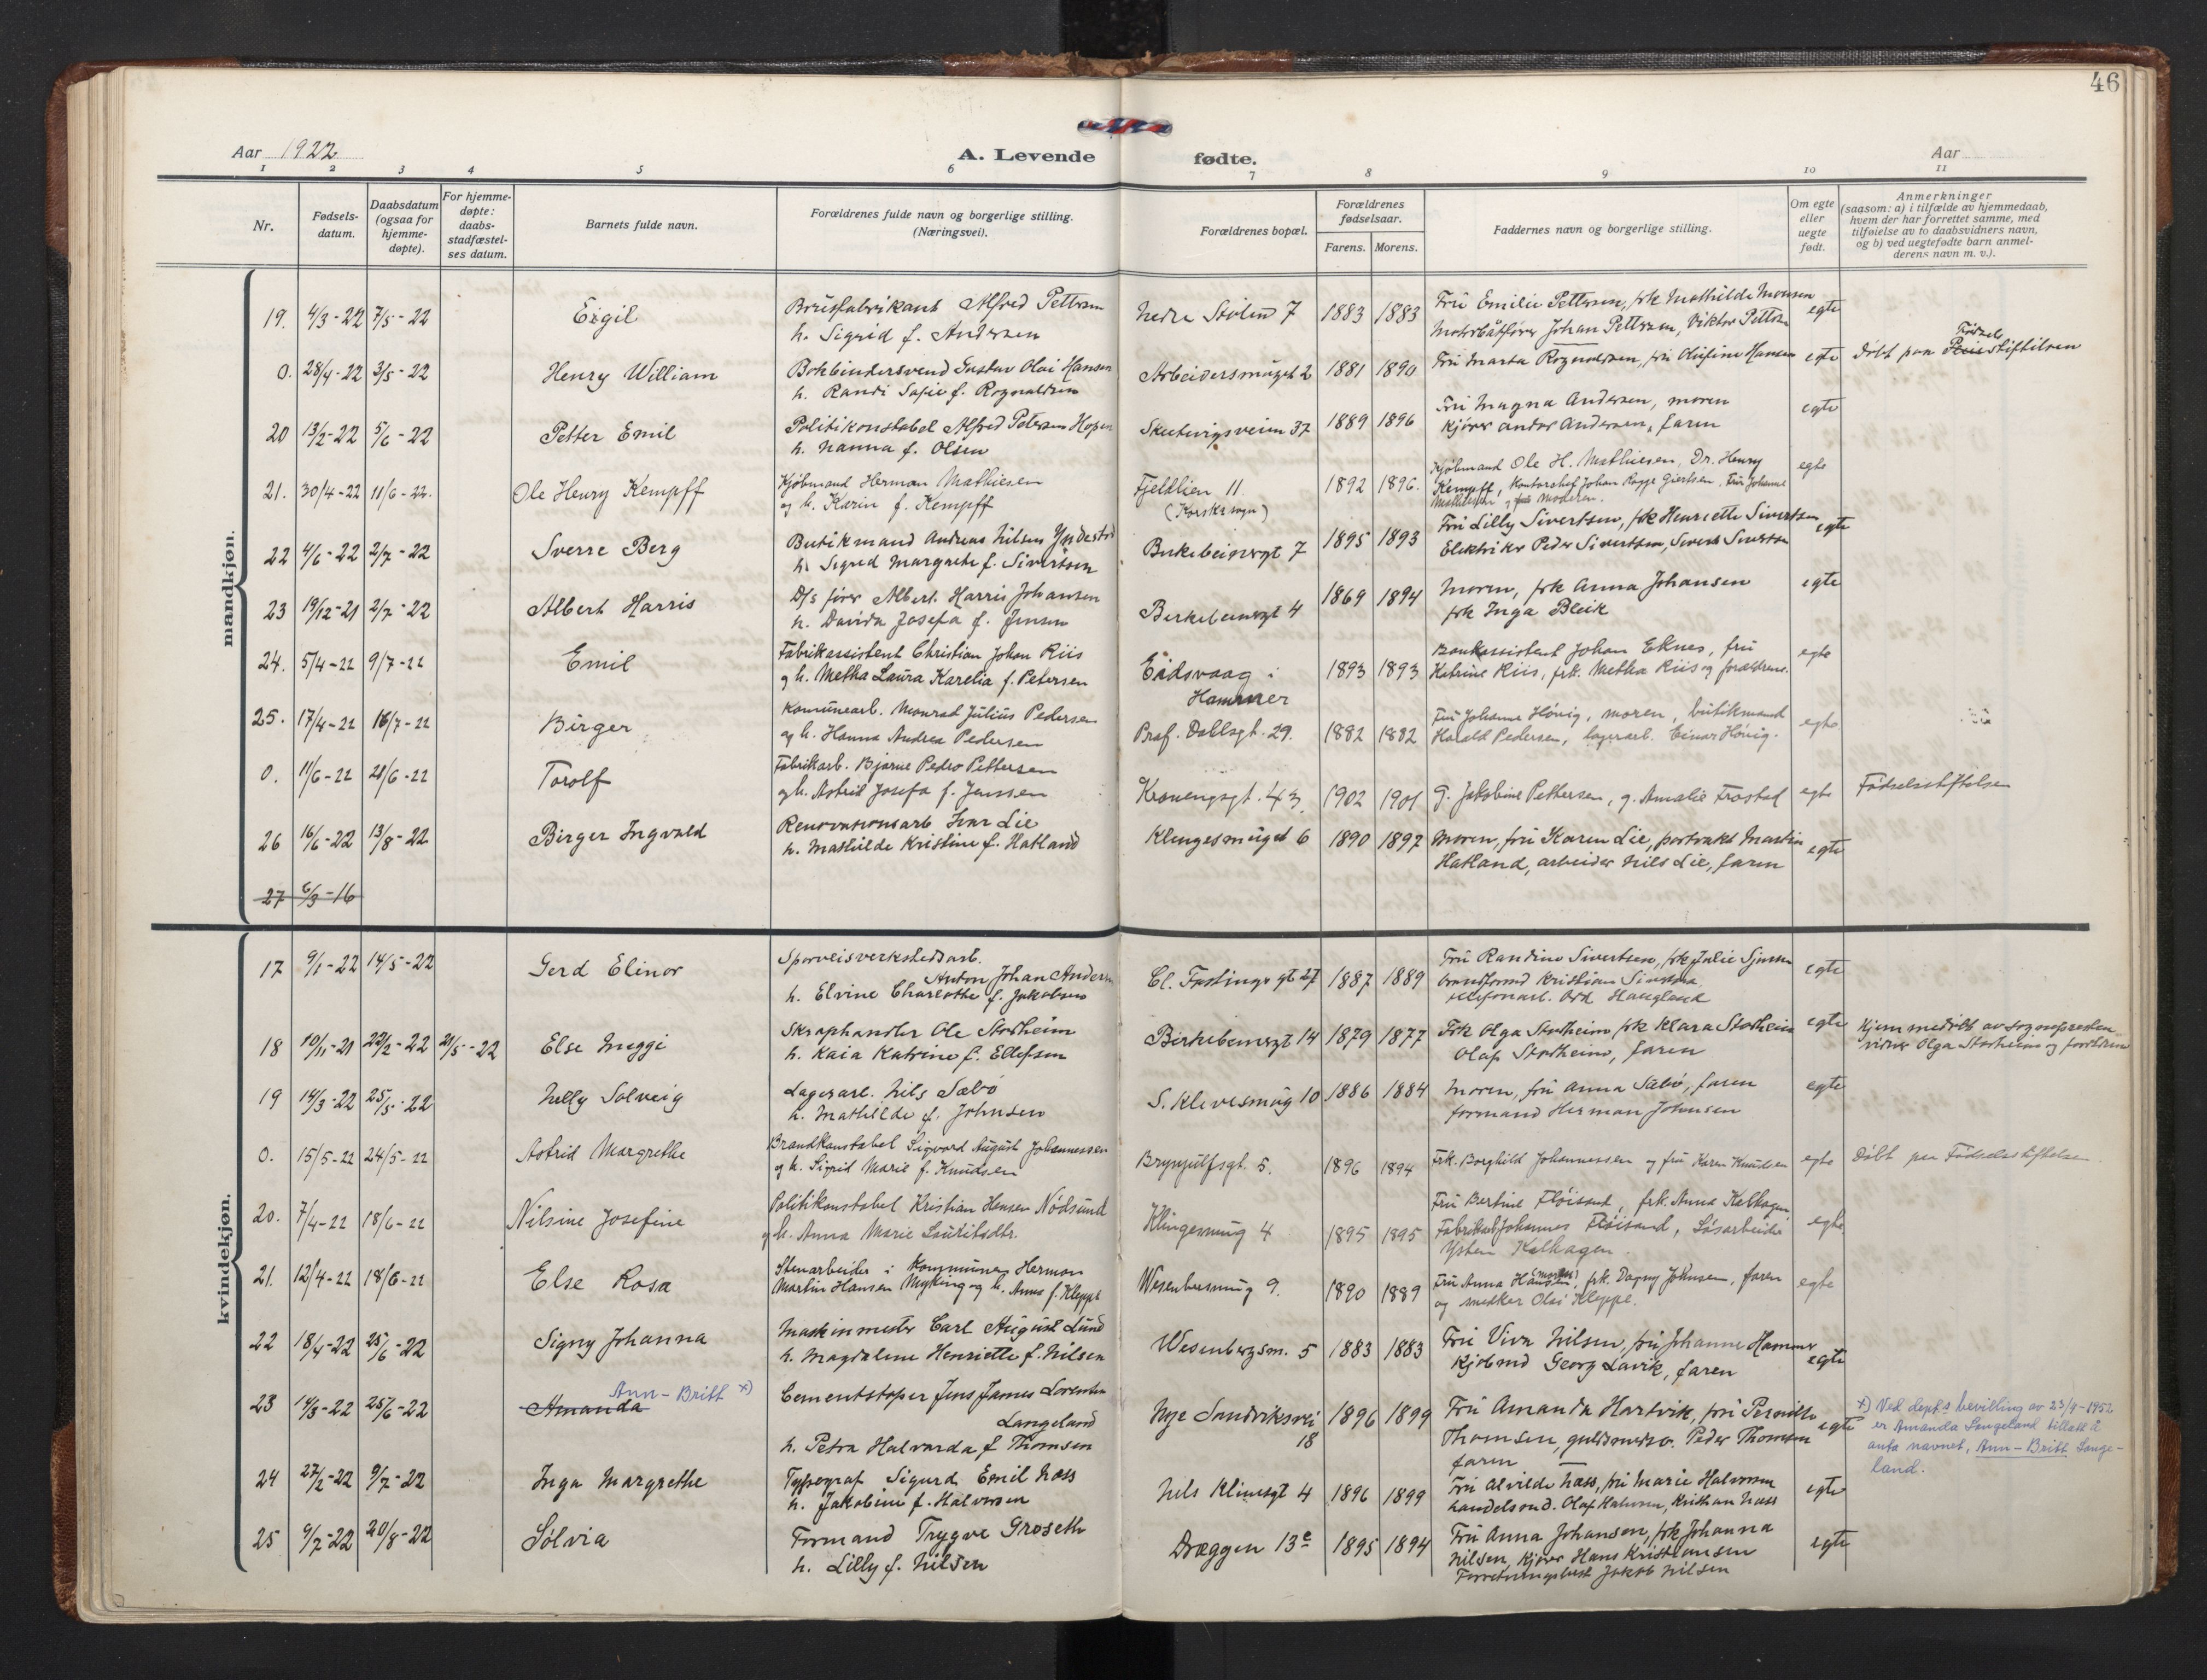 46
Aar 1922
A. Levende fødte.
Aar
1 2 3 4 5 6 7 8 9 10 11
Nr.
Fødsels-
datum.
Daabsdatum
(ogsaa for
hjemme-
døpte).
For hjemme-
døpte:
daabs-
stadfæstel-
ses datum.
Barnets fulde navn.
Forældrenes fulde navn og borgerlige stilling.
(Næringsvei).
Forældrenes bopæl.
Forældrenes
fødselsaar.
Farens. Morens.
Faddernes navn og borgerlige stilling.
Om egte
eller
uegte
født.
Anmerkninger
(saasom: a) i tilfælde av hjemmedaab,
hvem der har forrettet samme, med
tilføielse av to daabsvidners navn,
og b) ved uegtefødte barn anmel-
derens navn m. v.).
mandkjøn.
19. 4/3-22 7/5-22 Eigil
Brusfabrikant Alfred Pettersen
h. Sigrid f. Andersen
Nedre Stölen 7 1883 1883
Fru Emilie Pettersen, frk Mathilde Monsen
Motorbåtfører Johan Pettersen, Viktor Pettersen
egte
0. 28/4-22 3/5-22 Henry William
Bokbindersvend Gustav Olai Hansen
h. Randi Sofie f. Rognaldsen
Arbeidersmuget 2 1881 1890
Fru Marta Rognaldsen, fru Olufine Hansen
egte
Döbt paa Fødselsstiftelsen
20 13/2-22 5/6-22 Petter Emil
Politikonstabel Alfred Petersen Hopen
h. Nanna f. Olsen
Skutevigsveien 37 1889 1896
Fru Magna Andersen, moren
Kjører Andor Andersen, faren
egte
21. 30/4-22 11/6-22. Ole Henry Kempff
Kjöbmand Herman Mathiesen
og h. Karin f. Kempff
Fjeldlien 11
(Korskr.sogn)
1892 1896.
Kjöbmand Ole H. Mathiesen, Dr. Henry
Kempff, Kontorchef Johan Giertsen, Fru Johanne
Mathiesen og moderen.
egte
22 4/6-22 2/7-22 Sverre Berg
Butikmand Andreas Nilsen Yndestad
h. Sigrid Margrethe f. Sivertsen
Birkebeinergt 7 1895 1893
Fru Lilly Sivertsen, frk Henriette Sivertsen
Elektriker Peder Sivertsen, Sivert Sivertsen
egte
23 19/12-21 2/7-22 Albert Harris
D/s fører Albert Harris Johansen
h. Davida Josefa f. Jensen
Birkebeinergt 4 1869 1894
Moren, frk Anna Johansen
frk Inga Bleik
egte
24. 5/4-22 9/7-22 Emil
Fabrikassistent Christian Johan Riis
og h. Metha Laura Karelia f. Petersen
Eidsvaag i
Hammer
1893 1893
Bankassistent Johan Eknes, fru
Katrine Riis, frk. Metha Riis og forældrene.
egte
25. 17/4-22 16/7-22 Birger
Komunearb. Monrad Julius Pedersen
og h. Hanna Andrea Pedersen
Prof. Dahlsgt. 29. 1882 1882
Fru Johanne Hövig, moren, butikmand
Harald Pedersen, lagerarb. Einar Hövig.
egte
0. 11/6-22 21/6-22 Torolf
Fabrikarb. Bjarne Pedro Pettersen
og h. Astrid Josefa f. Jenssen
Kroneng.gt. 43 1902 1901
g. Jakobine Pettersen, g. Amalie Frostad
egte
Fødselsstiftelsen
26 16/6-22 13/8-22 Birger Ingvald
Renovationsarb Ivar Lie
h. Mathilde Kristine f. Hatland
Klingesmuget 6 1890 1897
Moren, fru Karen Lie, Martin
Hatland, arbeider Nils Lie, faren
egte
27 6/3-16
kvindekjøn.
17 9/1-22 14/5-22 Gerd Elinor
Sporveisverkstedsarb.
Anton Johan Andersen
h. Elvine Charlotte f. Jakobsen
Cl. Fastings gt 27 1887 1889
Fru Randine Sivertsen, frk Julie
Kristian
telefonarb. Haugland
egte
18 10/11-21 22/2-22 21/5-22 Else Meggi
Skraphandler Ole Storheim
h. Kaia Katrine f. Ellefsen
Birkebeinergt 14 1879 1877
Frk Olga Storheim, frk Klara Storheim
Olaf Storheim, faren
egte
Hjemmedöbt av sognepresten
vidner Olga Storheim og forældrene
19 14/3-22 25/5-22 Nelly Solveig
Lagerarb. Nils Sæbö
h. Mathilde f. Johnsen
S. Klevesmug 10 1886 1884
Moren, fru Anna Sæbö, faren
formand Herman Johnsen
egte
0. 15/5-22 24/5-22 Astrid Margrethe
Brandkonstabel Sigvard August Johannessen
og h. Sigrid Marie f. Knudsen
Brynjulfsgt. 5. 1896 1894
Frk. Borghild Johannessen og fru Karen Knudsen
egte
Döbt paa Fødselsstiftelsen
20. 7/4-22 18/6-22 Nilsine Josefine
Politikonstabel Kristian Hansen Nödsund
og h. Anna Marie Lauritsdtr.
Klingesmug 4 1895 1895
Fru Bertine Flöisand, frk. Anna Kalhagen
Fabrikarb Johannes Flöisand, Lösarbeider
Ysten Kalhagen.
egte
21. 12/4-22 18/6-22 Else Rosa
Stenarbeider i Kommunen Herman
Martin Hansen Myking og h. Anna f. Kleppe
Wesenbersmug 9. 1890 1889
Fru Anna Hansen (moren), frk. Dagny Johnsen, faren
og snedker Olai Kleppe.
egte
22 18/4-22 25/6-22 Signy Johanna
Maskinmester Carl August Lund
h. Magdalene Henriette f. Nilsen
Wesenbergsm. 5 1883 1883
Fru Viva Nilsen, fru Johanne Hammer
Kjöbmd Georg Lavik, faren
egte
23 14/3-22 25/6-22 Amanda Ann-Britt x)
Cementstøper Jens James Lorentsen
Langeland
h. Petra Halvarda f Thomsen
Nye Sandviksvei
18
1896 1899
Fru Amanda Hartvik, fru Pernille
Thomsen, guldsmedsv. Peder Thomsen
faren
egte
x) Ved dept.s bevilling av 23/9-1952
er Amanda Langeland tillatt å
anta navnet, Ann-Britt Lange-
land.
24 27/2-22 9/7-22 Inga Margrethe
Typograf Sigurd Emil Næss
h. Jakobine f. Halvorsen
Nils Klimsgt 4 1896 1899
Fru Alvilde Næss, fru Marie Halvorsen
handelsmd. Olaf Halvorsen, Kristian Næss
egte
25 9/7-22 20/8-22 Sølvia
Formand Trygve Groseth
h. Lilly f. Nilsen
Dræggen 13e 1895 1894
Fru Anna Johansen, frk Johanna
Nilsen, Kjører Hans Kristiansen
Jakob Nilsen
egte